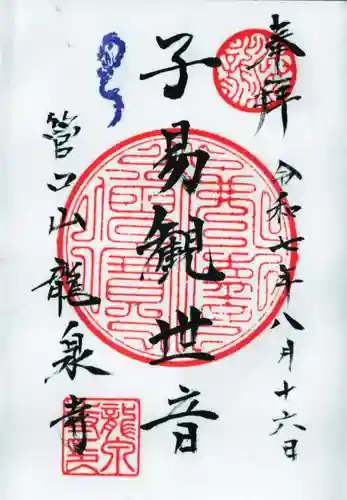 奉拝
令和七年八月十六日
子易観世音
管口山龍泉寺